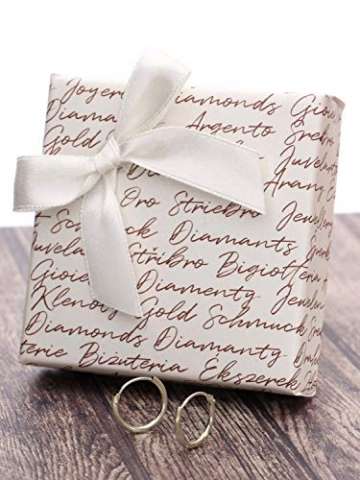 Joyer Diamonds Gioie
Diaman Argento Srebro
Gold Juvelart
Oro Striebro Arany
Schmuck Diamants Jewelr
Juvela Stříbro Bigiotteria
Gioie Diamenty Jewelr
Klenoty Gold Schmuck Oro
Diamonds Diamanty
terie Biżuteria Ékszerek